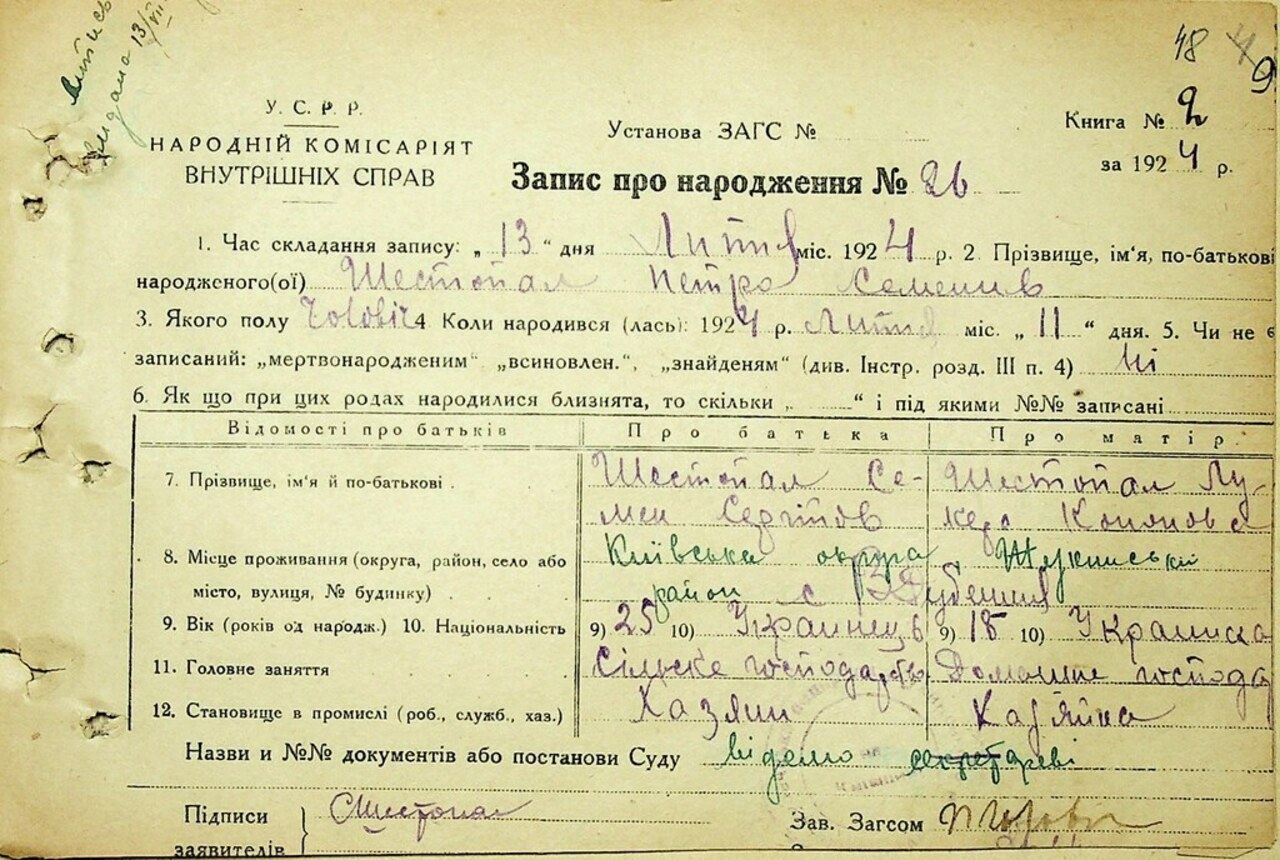 48 49
Витись
видана 13/VII
У. С. Р. Р.
НАРОДНІЙ КОМІСАРІЯТ
ВНУТРІШНІХ СПРАВ
Установа ЗАГС №
Книга № 2
за 1924 р.
Запис про народження № 26
1. Час складання запису: „ 13 “ дня Лютия міс. 1924 р. 2. Прізвище, ім‘я, по-батькові
народженого(ої) Шестопал Петро Семенив
3. Якого полу 4 Коли народився (лась): 1924 р. Лютия міс. „ 11 “ дня. 5. Чи не є
записаний: „мертвонародженим“ „всиновлен.“, „знайденям“ (див. Інстр. розд. III п. 4) Ні
6. Як що при цих родах народилися близнята, то скільки „ “ і під якими №№ записані
Відомості про батьків Про батька Про матір.
7. Прізвище, ім‘я й по-батькові Шестопал Се- Шестопал Лу-
мен кера
8. Місце проживання (округа, район, село або Київська округа
місто, вулиця, № будинку) район с
9. Вік (років од народж.) 10. Національність 9) 25 10) Украинець 9) 18 10) Украинка
11. Головне заняття Сільске господарство Домашне господа
12. Становище в промислі (роб., служб., хаз.) Хазяин Хазяйка
Назви и №№ документів або постанови Суду відомо секретареві
Підписи Шестопал Зав. Загсом
заявителів